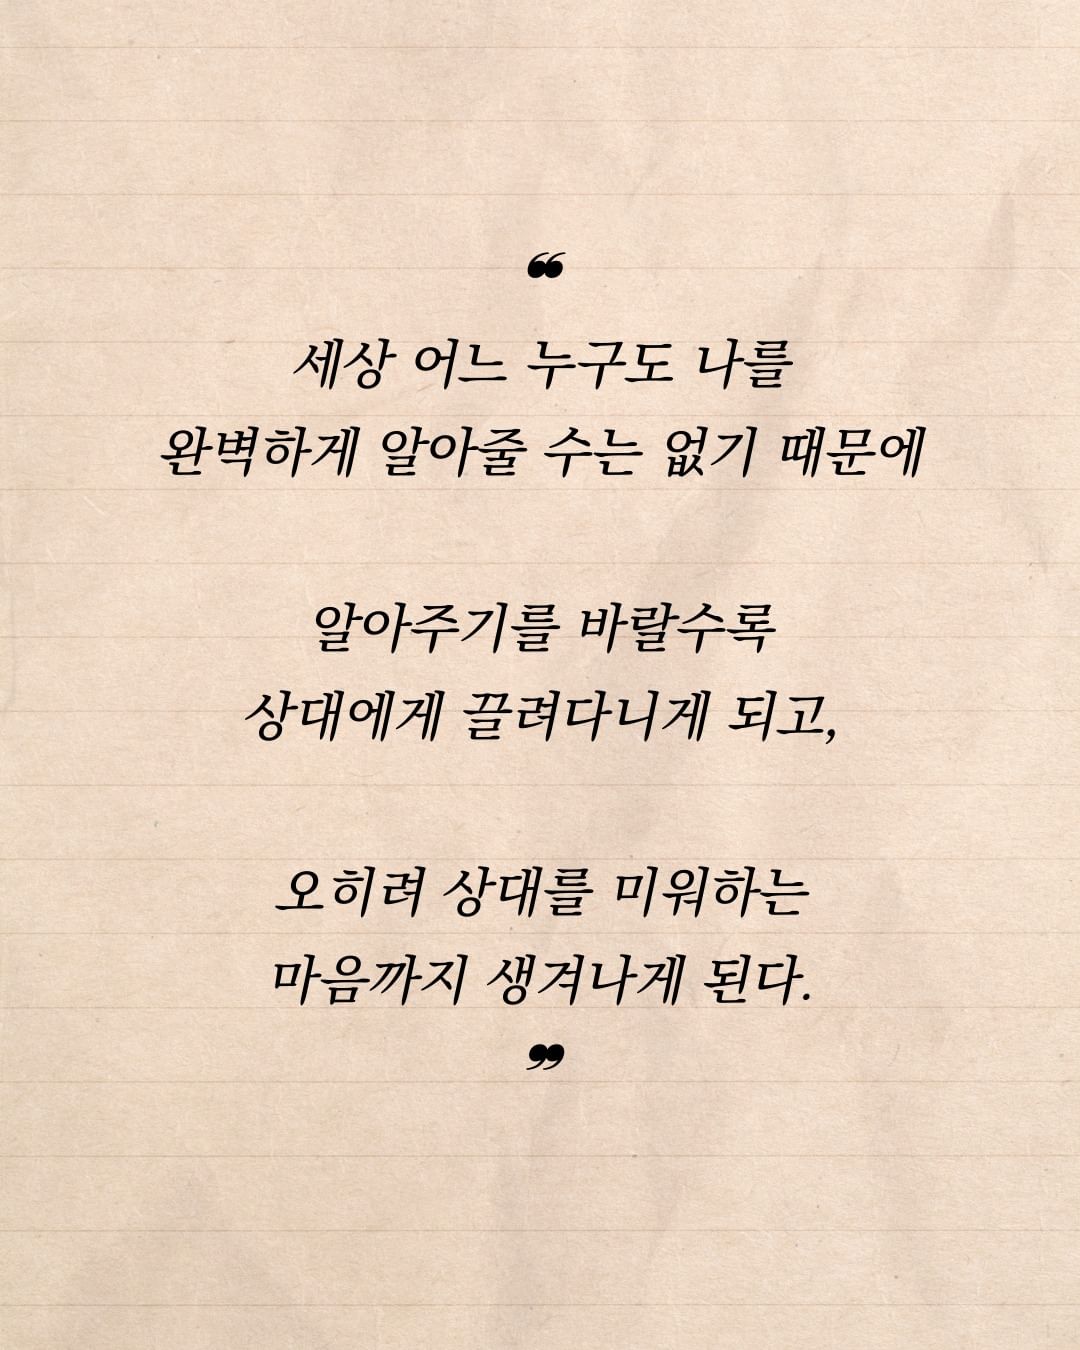 ❝
세상 어느 누구도 나를
완벽하게 알아줄 수는 없기 때문에
알아주기를 바랄수록
상대에게 끌려다니게 되고,
오히려 상대를 미워하는
마음까지 생겨나게 된다.
❞